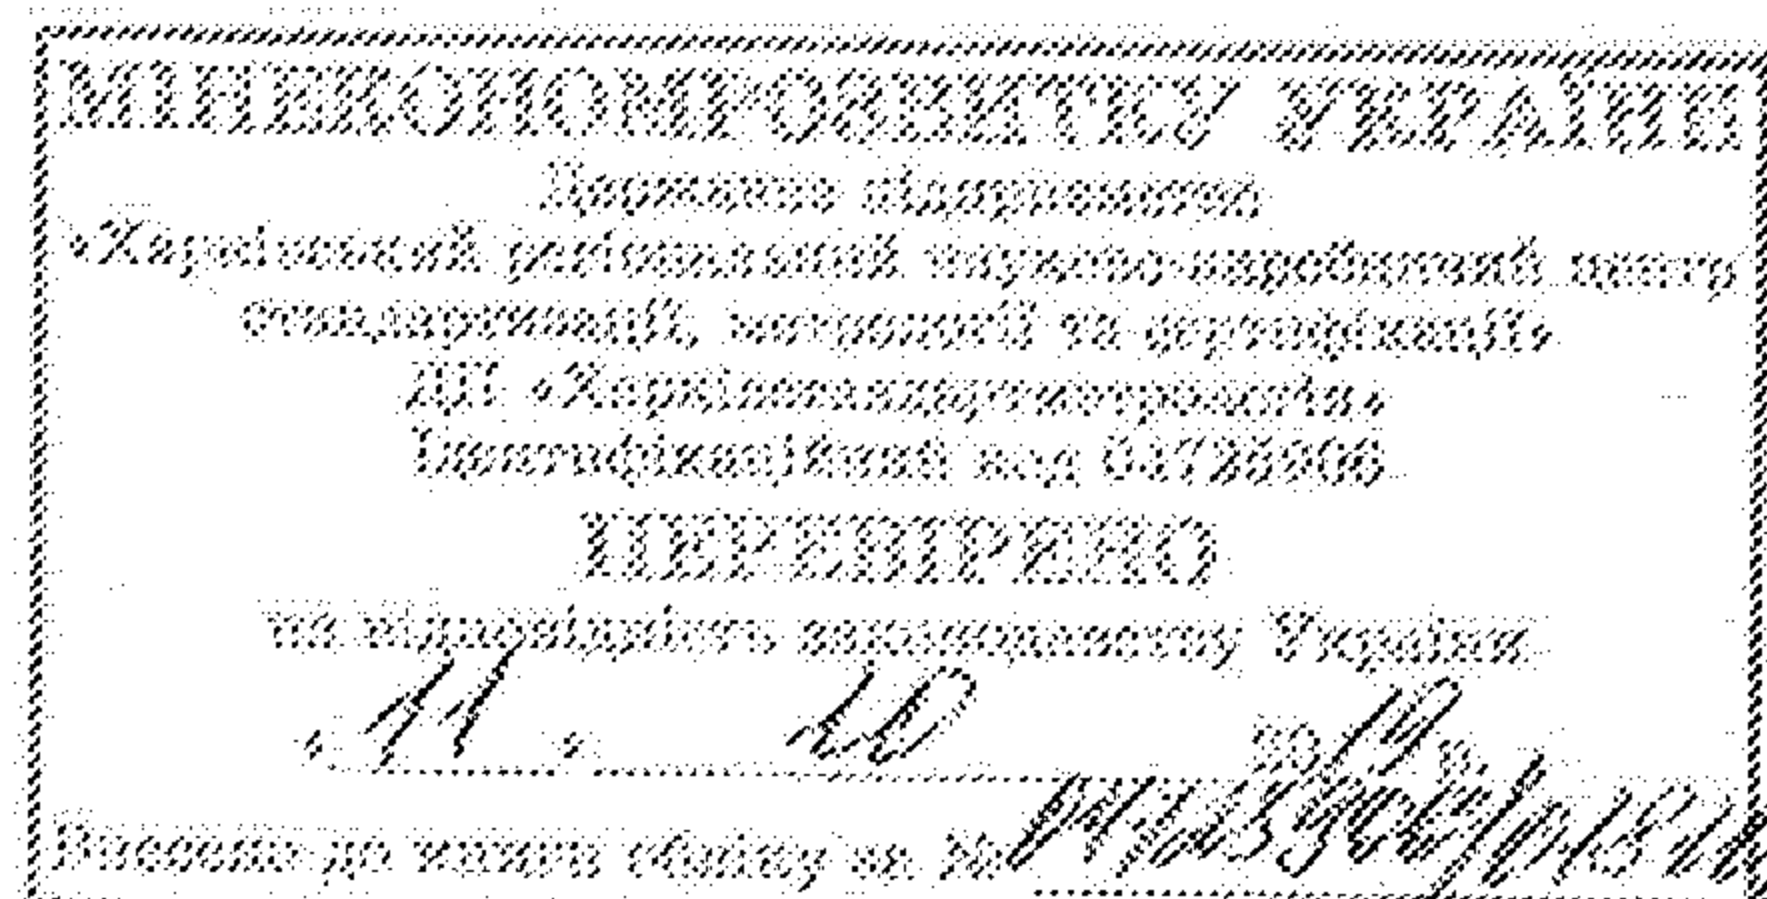 МІНЕКОНОМРОЗВИТКУ УКРАЇНИ
Державне підприємство
«Харківський регіональний науково-виробничий центр
стандартизації, метрології та сертифікації»
ДП «Харківстандартметрологія»
Ідентифікаційний код 04725906
ПЕРЕВІРЕНО
на відповідність законодавству України
« 11 » 10 2019 р.
Внесено до книги обліку за №